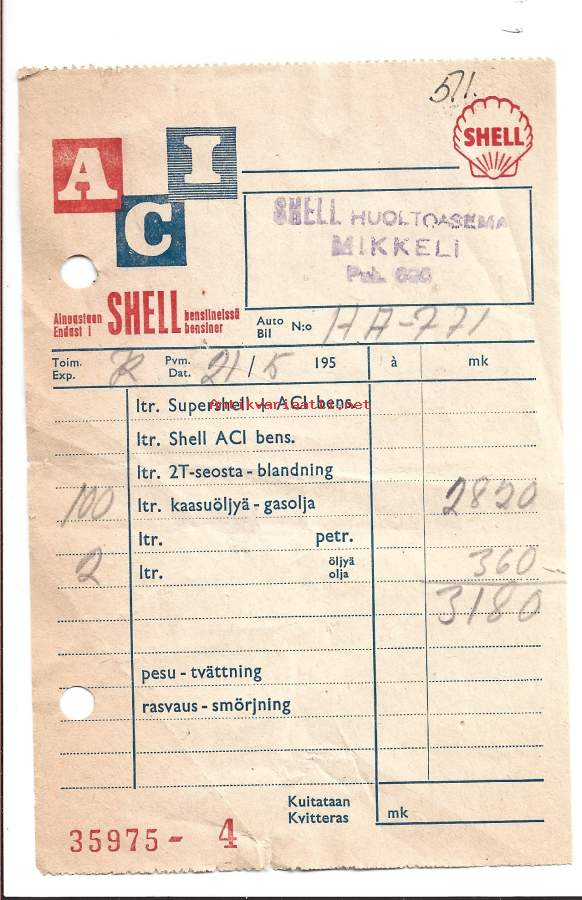 511.
SHELL
A I
C
SHELL HUOLTOASEMA
MIKKELI
Puh.
Ainoastaan SHELL bensiineissä
Endast i bensiner
Auto
Bil N:o HA-771
Toim.
Exp.
Pvm.
Dat. 21/5 195 à mk
ltr. Supershell + ACI bens.
Antikvariaatti.net
ltr. Shell ACI bens.
ltr. 2T-seosta - blandning
100 ltr. kaasuöljyä - gasolja 2820
ltr. petr.
2 ltr. öljyä
olja 360-
3180
pesu - tvättning
rasvaus - smörjning
Kuitataan
Kvitteras mk
35975 - 4